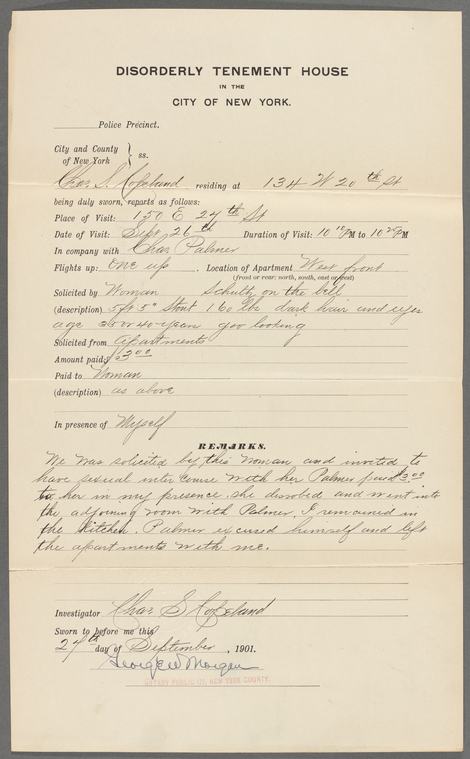 DISORDERLY TENEMENT HOUSE
IN THE
CITY OF NEW YORK.
Police Precinct.
City and County
of New York } ss.
Chas. S. Copeland residing at 134 W 20th St
being duly sworn, reports as follows:
Place of Visit: 150 E 27th St
Date of Visit: Sept, 26th Duration of Visit: 10 10 PM to 10 25 PM
In company with Chas Palmer
Flights up: One up. Location of Apartment West front
(front or rear: north, south, east or west)
Solicited by Woman Schultz on the bell
(description) 5 ft 5" Stout 160 lbs dark hair and eyes
age 35 or 40 years goo looking
Solicited from apartments
Amount paid: $3.00
Paid to Woman
(description) as above
In presence of Myself
REMARKS.
We was solicited by this woman and invited to
have sexual inter course with her Palmer paid $3.00
to her in my presence. she disrobed and went into
the adjoining room with Palmer. I remained in
the kitchen. Palmer excused himself and left
the apartments with me.
Investigator Chas S Copeland
Sworn to before me this
27th day of September, 1901.
George W Morgan
NOTARY PUBLIC NEW YORK COUNTY.